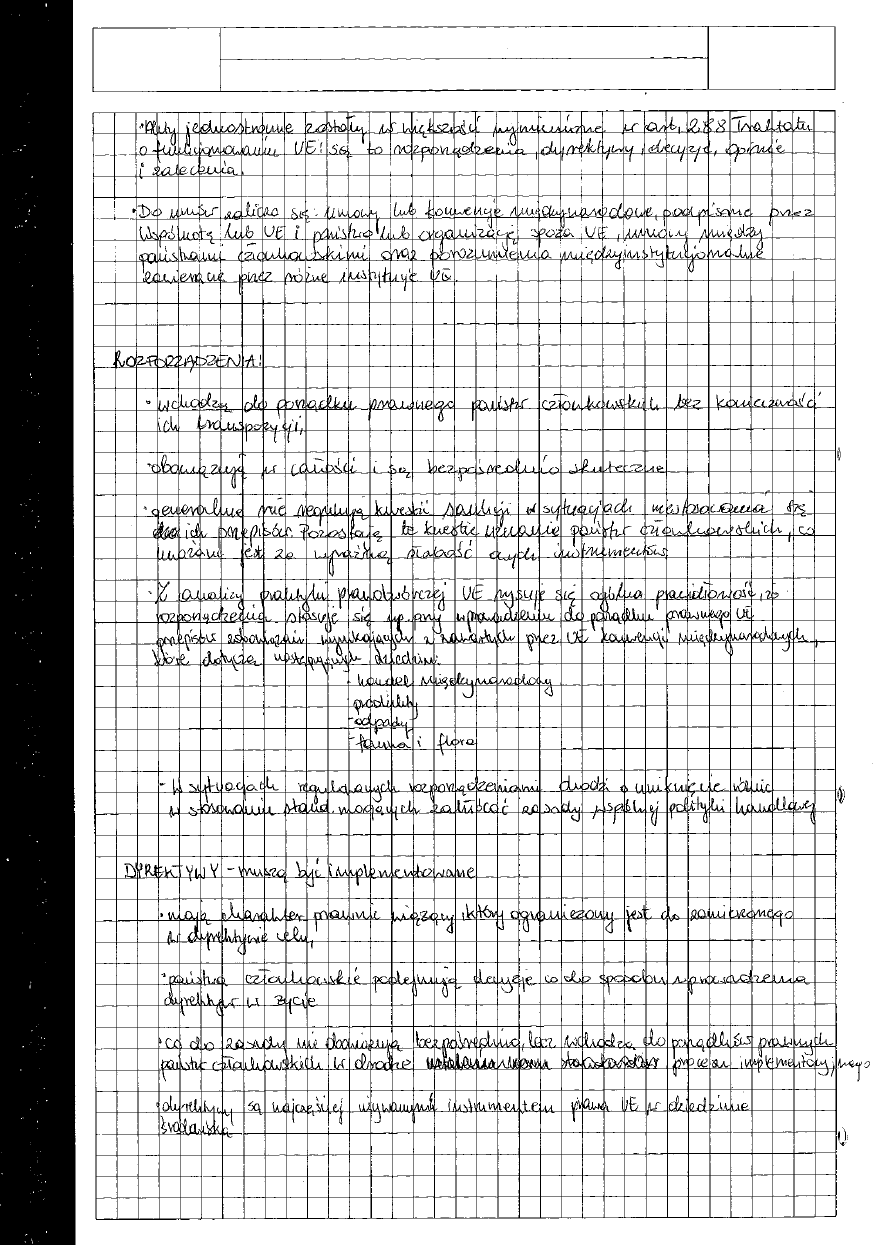 • Akty jednostronne zostały w większości wymienione w art. 288 Traktatu
o funkcjonowaniu UE: są to rozporządzenia, dyrektywy, decyzje, opinie
i zalecenia.
• Do umów zalicza się: umowy lub konwencje międzynarodowe, podpisane przez
Wspólnotę lub UE i państwo lub organizację spoza UE, umowy między
państwami członkowskimi oraz porozumienia międzyinstytucjonalne
zawierane przez różne instytucje UE.
ROZPORZĄDZENIA:
• wchodzą do porządku prawnego państw członkowskich bez konieczności
ich transpozycji,
• obowiązują w całości i są bezpośrednio skuteczne
• generalnie nie regulują kwestii sankcji w sytuacjach niestosowania się
do ich przepisów. Pozostają te kwestie uznaniu państw członkowskich, co
uważane jest za wyraźną słabość tych instrumentów
• Z analizy praktyki prawotwórczej UE rysuje się ogólna prawidłowość, że
rozporządzenia stosuje się przy wprowadzeniu do porządku prawnego UE
przepisów zobowiązań wynikających z zawartych przez UE konwencji międzynarodowych,
które dotyczą następujących dziedzin:
- handel międzynarodowy
- produkty
- odpady
- fauna i flora
- W sytuacjach regulowanych rozporządzeniami chodzi o uniknięcie różnic
w stosowaniu stand. mogących zakłócać zasady wspólnej polityki handlowej
DYREKTYWY - muszą być implementowane
• mają charakter prawnie wiążący, który ograniczony jest do zamierzonego
w dyrektywie celu,
• państwa członkowskie podejmują decyzje co do sposobu wprowadzenia
dyrektyw w życie
• co do zasady nie obowiązują bezpośrednio, lecz wchodzą do porządków prawnych
państw członkowskich w drodze procesu implementacyjnego
• dyrektywy są najczęściej używanym instrumentem prawa UE w dziedzinie
środowiska